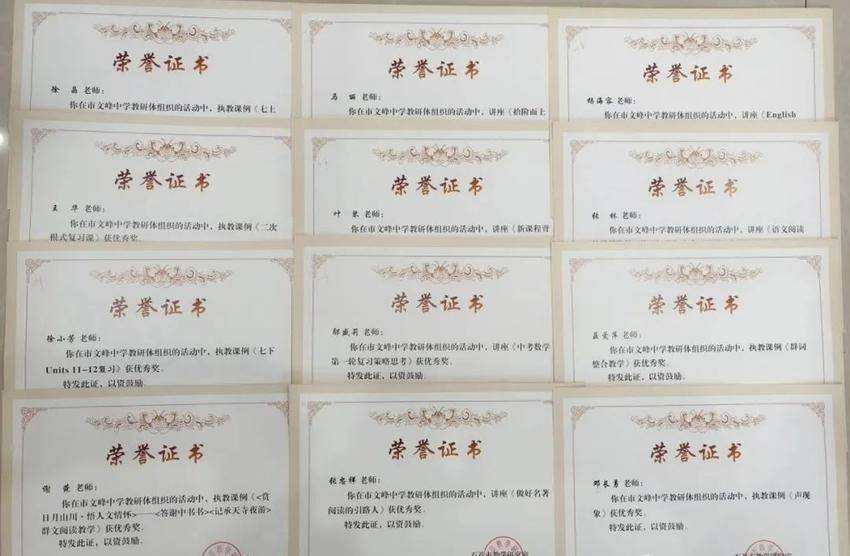 荣誉证书
徐 晶 老师：
你在市文峰中学教研体组织的活动中，执教课例《七上
荣誉证书
马 丽 老师：
你在市文峰中学教研体组织的活动中，讲座《拾阶而上
荣誉证书
杨海容 老师：
你在市文峰中学教研体组织的活动中，讲座《English
荣誉证书
王 华 老师：
你在市文峰中学教研体组织的活动中，执教课例《二次
根式复习课》获优秀奖
荣誉证书
叶 老师：
你在市文峰中学教研体组织的活动中，讲座《新课程背
荣誉证书
张 林 老师：
你在市文峰中学教研体组织的活动中，讲座《语文阅读
荣誉证书
徐小芳 老师：
你在市文峰中学教研体组织的活动中，执教课例《七下
Units 11-12复习》获优秀奖.
特发此证，以资鼓励.
荣誉证书
邬盛莉 老师：
你在市文峰中学教研体组织的活动中，讲座《中考数学
第一轮复习策略思考》获优秀奖.
特发此证，以资鼓励.
荣誉证书
聂爱萍 老师：
你在市文峰中学教研体组织的活动中，执教课例《群词
整合教学》获优秀奖.
特发此证，以资鼓励.
荣誉证书
谢 薇 老师：
你在市文峰中学教研体组织的活动中，执教课例《<赏
日月山川·悟人文情怀>——<答谢中书书><记承天寺夜游>
群文阅读教学》获优秀奖.
特发此证，以资鼓励.
荣誉证书
张忠辉 老师：
你在市文峰中学教研体组织的活动中，讲座《做好名著
阅读的引路人》获优秀奖.
特发此证，以资鼓励.
荣誉证书
邓长勇 老师：
你在市文峰中学教研体组织的活动中，执教课例《声现
象》获优秀奖.
特发此证，以资鼓励.